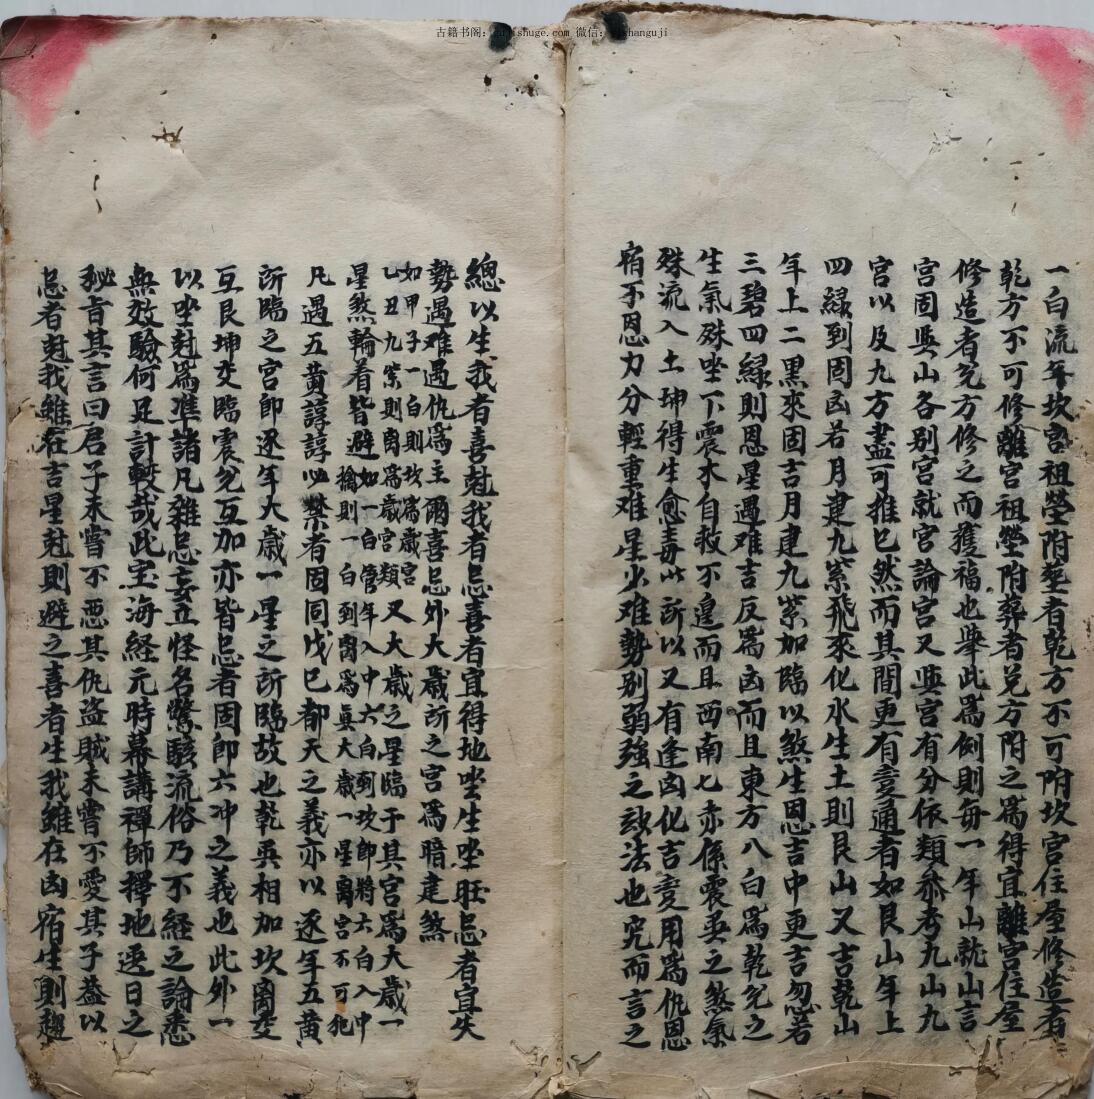 古籍书阁：gujishuge.com 微信：yishanguji
一白流年坎宮祖塋附塟者乾方不可附坎宮住屋修造者
乾方不可修離宮祖塋附葬者兑方附之爲得宜離宮住屋
修造者兑方修之而獲福也舉此爲例則每一年山就山言
宮固與山各别宮就宮論宮又與宮有分依類叅考九山九
宮以及九方盡可推已然而其間更有変通者如艮山年上
四緑到固凶若月建九紫飛來化水生土則艮山又吉乾山
年上二黑來固吉月建九紫加臨以煞生恩吉中更吉勿容
三碧四緑則恩星遇难吉反爲凶而且東方八白爲乾兑之
生氣殊坐下震木自救不遑而且西南七赤係震巽之煞氣
殊流入土坤得生愈毒此所以又有逢凶化吉変用爲仇恩
宿不恩力分輕重难星火难勢别弱強之訣法也究而言之
總以生我者喜尅我者忌喜者宜得地坐生坐旺忌者宜失
勢遇难遇仇爲主爾喜忌外大歲所之宮爲暗建煞
如甲子一白則坎爲歲宮
乙丑九紫則离爲歲宮類
又大歲之星臨于其宮爲大歲一
星煞輪着皆避
如一白管年入中六白到坎即將六白入中
擒則一白到离爲真大歲一星离宮不可犯
凡遇五黄諄諄必禁者固同戊已都天之義亦以逐年五黄
所臨之宮即逐年大歲一星之所臨故也乾巽相加坎离交
互艮坤交臨震兑互加亦皆忌者固即六冲之義也此外一
以坐尅爲准諸凡雜忌妄立怪名驚駭流俗乃不經之論悉
無效驗何足計較哉此宝海経元時幕講禪師擇地選日之
秘旨其言曰君子未嘗不惡其仇盗賊未嘗不愛其子葢以
忌者尅我雖在吉星尅則避之喜者生我雖在凶宿生則趨